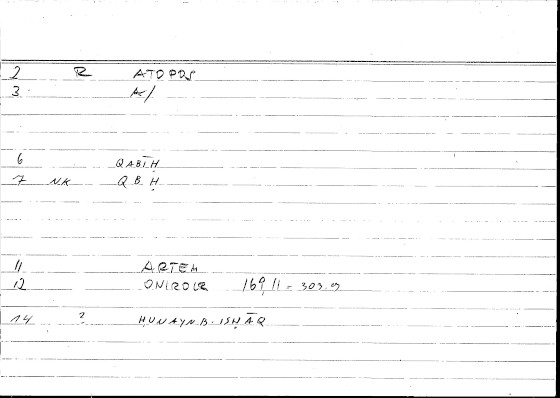 2 R ATOPOS
3 A/
6 QABĪḤ
7 NK QBḤ
11 ARTEM
12 ONIROCR 169,11 = 303.9
14 ? ḤUNAYN B. ISḤĀQ